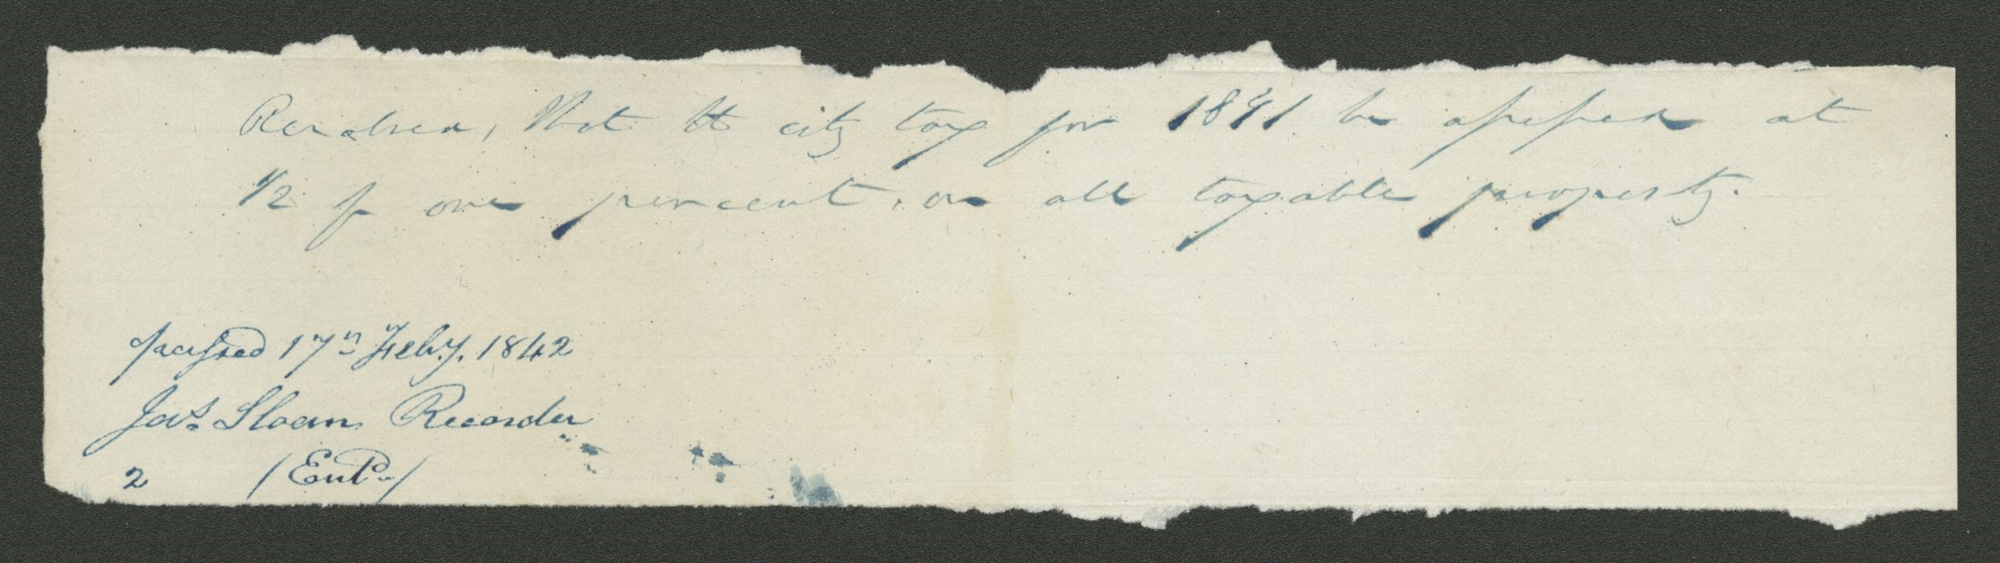 Resolved, That the city tax for 1841 be assessed at
1/2 of one percent. on all taxable property.
passed 17th Feby. 1842
Jas. Sloan Recorder
2